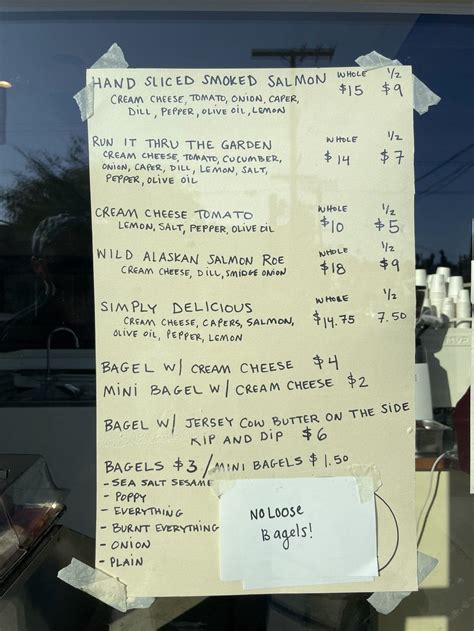 HAND SLICED SMOKED SALMON WHOLE $15 1/2 $9
CREAM CHEESE, TOMATO, ONION, CAPER,
DILL, PEPPER, OLIVE OIL, LEMON
RUN IT THRU THE GARDEN WHOLE $14 1/2 $7
CREAM CHEESE, TOMATO, CUCUMBER,
ONION, CAPER, DILL, LEMON, SALT,
PEPPER, OLIVE OIL
CREAM CHEESE TOMATO WHOLE $10 1/2 $5
LEMON, SALT, PEPPER, OLIVE OIL
WILD ALASKAN SALMON ROE WHOLE $18 1/2 $9
CREAM CHEESE, DILL, SMIDGE ONION
SIMPLY DELICIOUS WHOLE $14.75 1/2 7.50
CREAM CHEESE, CAPERS, SALMON,
OLIVE OIL, PEPPER, LEMON
BAGEL W/ CREAM CHEESE $4
MINI BAGEL W/ CREAM CHEESE $2
BAGEL W/ JERSEY COW BUTTER ON THE SIDE
RIP AND DIP $6
BAGELS $3 / MINI BAGELS $1.50
- SEA SALT SESAME
- POPPY
- EVERYTHING
- BURNT EVERYTHING
- ONION
- PLAIN
NO LOOSE
Bagels!
MVP